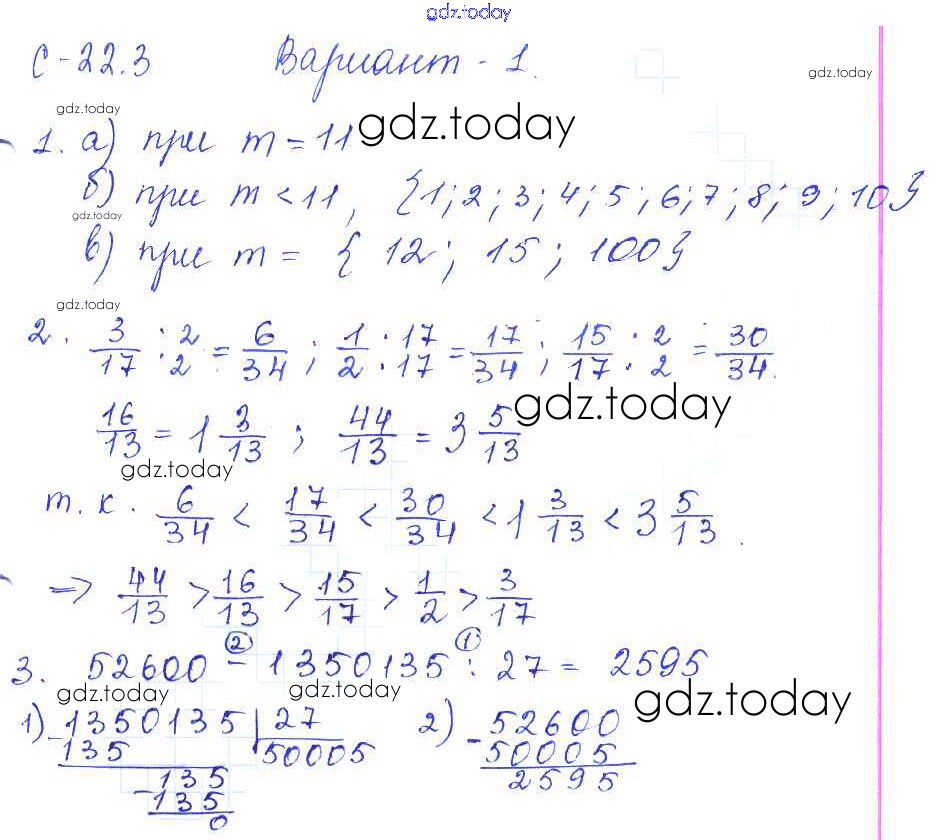 gdz.today
С-22.3 Вариант - 1.
gdz.today
gdz.today
1. а) при m = 11 gdz.today
б) при m < 11, {1; 2; 3; 4; 5; 6; 7; 8; 9; 10}
gdz.today
в) при m = {12; 15; 100}
gdz.today
2. 3/17 : 2/2 = 6/34 ; 1/2 · 17/17 = 17/34 ; 15/17 · 2/2 = 30/34.
gdz.today
16/13 = 1 3/13 ; 44/13 = 3 5/13
gdz.today
т.к. 6/34 < 17/34 < 30/34 < 1 3/13 < 3 5/13.
=> 44/13 > 16/13 > 15/17 > 1/2 > 3/17
② ①
3. 52600 - 1350135 : 27 = 2595
gdz.today gdz.today gdz.today
1) 1350135 | 27 2) 52600
-135 50005 -50005
-135 2595
135
0